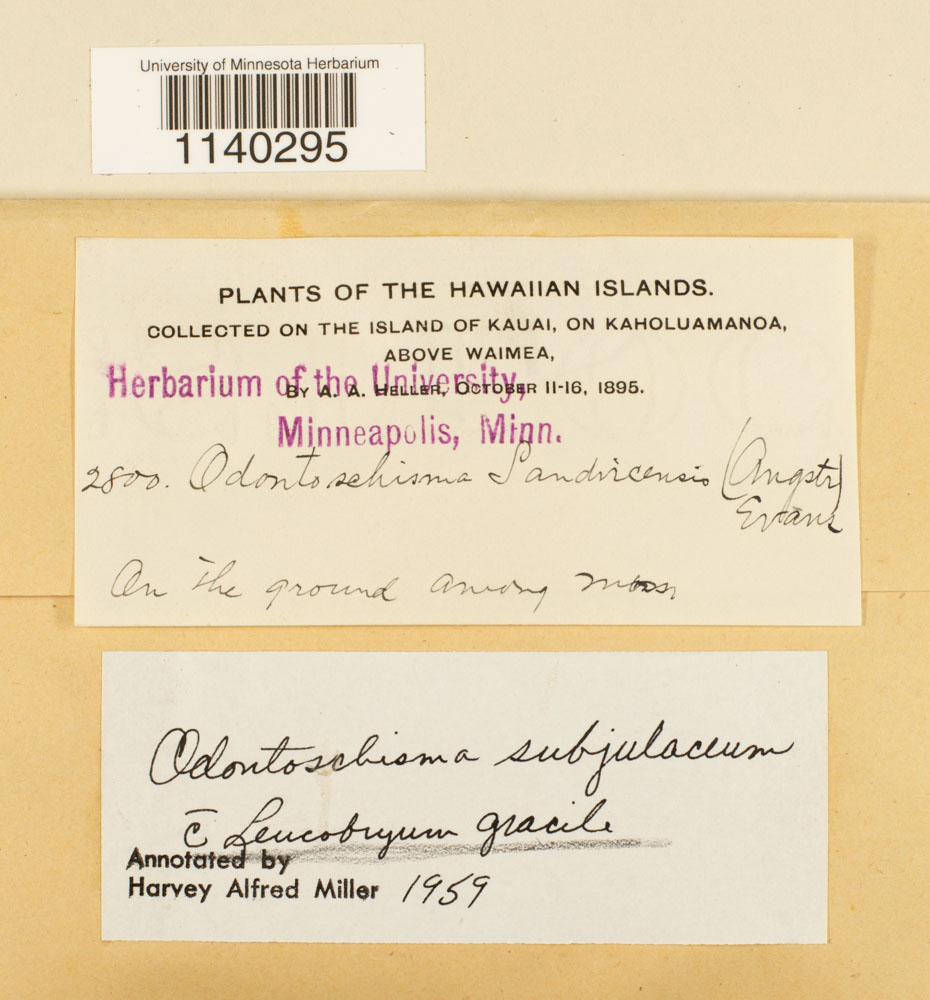 University of Minnesota Herbarium
1140295
PLANTS OF THE HAWAIIAN ISLANDS.
COLLECTED ON THE ISLAND OF KAUAI, ON KAHOLUAMANOA,
ABOVE WAIMEA,
BY A. A. HELLER, OCTOBER 11-16, 1895.
Herbarium of the University,
Minneapolis, Minn.
2800. Odontoschisma Sandvicensis (Angstr)
Evans
On the ground among moss
Odontoschisma subjulaceum
c̄ Leucobryum gracile
Annotated by
Harvey Alfred Miller 1959